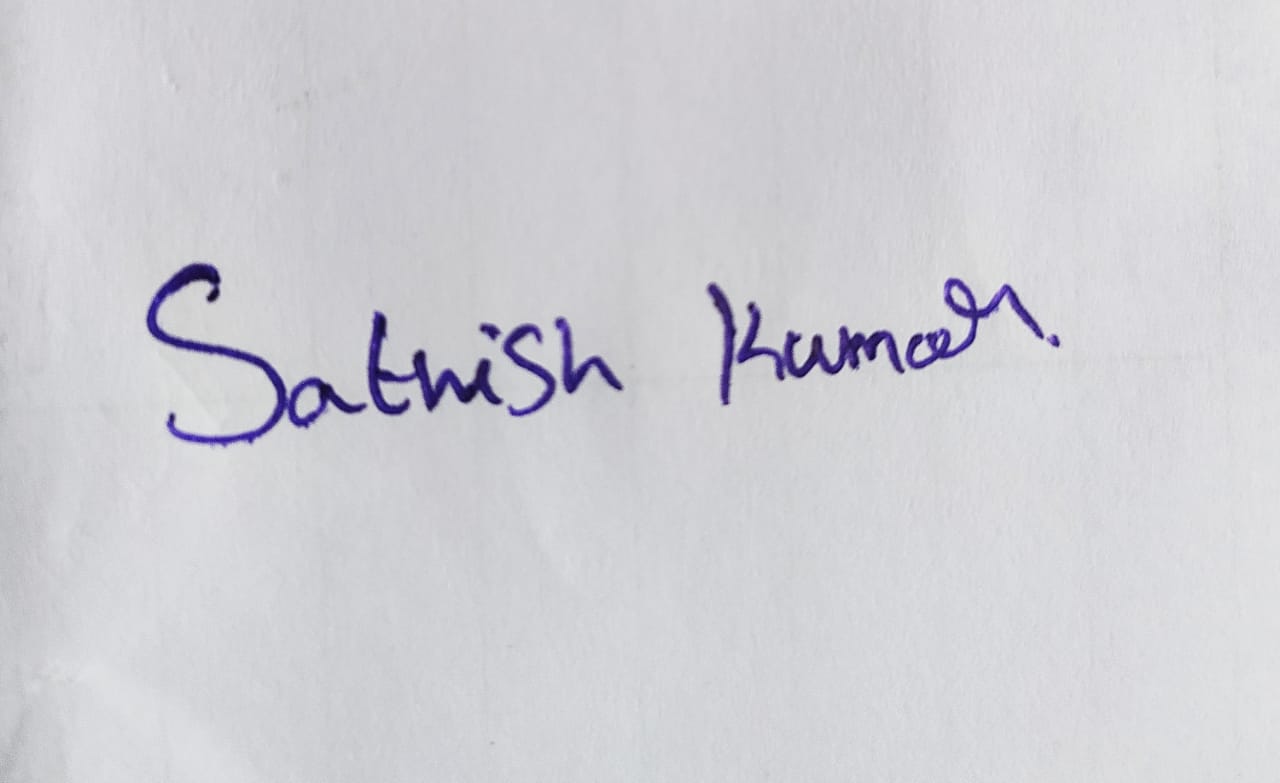 Sathish Kumar.